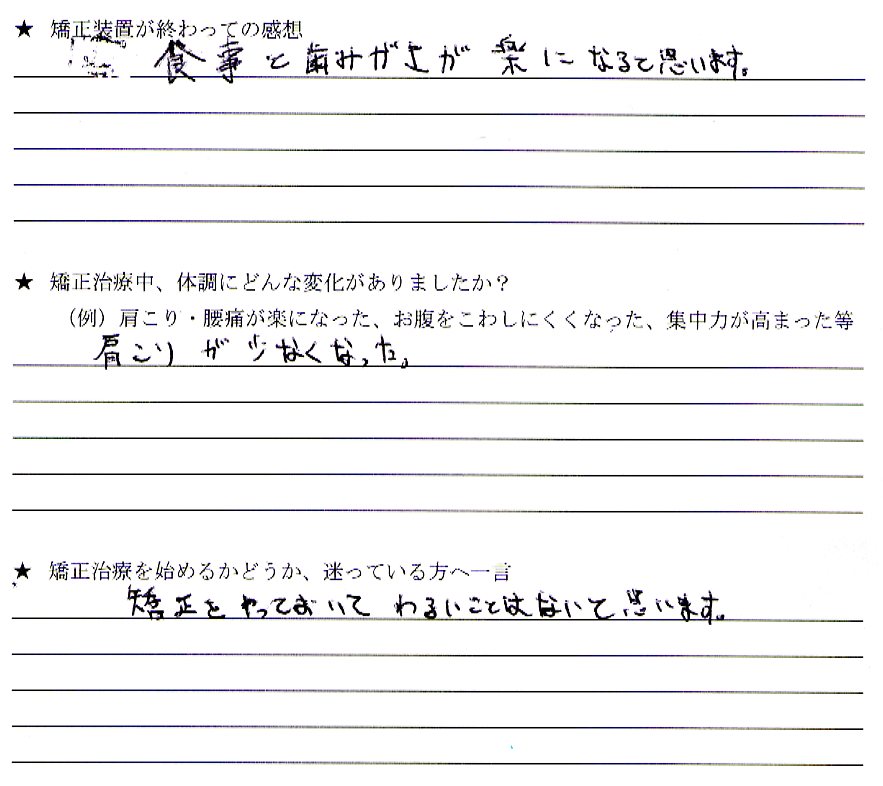 ★ 矯正装置が終わっての感想
食事と歯みがきが楽になると思います。
★ 矯正治療中、体調にどんな変化がありましたか？
（例）肩こり・腰痛が楽になった、お腹をこわしにくくなった、集中力が高まった等
肩こりが少なくなった。
★ 矯正治療を始めるかどうか、迷っている方へ一言
矯正をやっておいてわるいことはないと思います。